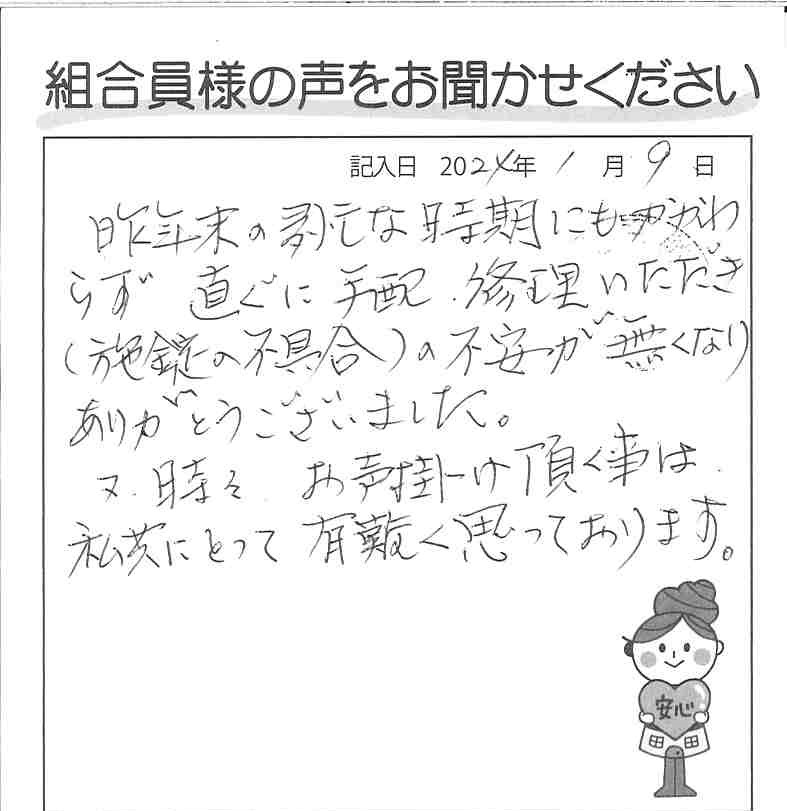 組合員様の声をお聞かせください
記入日 2024年 1月 9日
昨年末の多忙な時期にもかかわ
らず 直ぐに手配.修理いただき
(施錠の不具合)の不安が無くなり
ありがとうございました。
又.時々.お声掛け頂く事は.
私共にとって有難く思っております。
安心